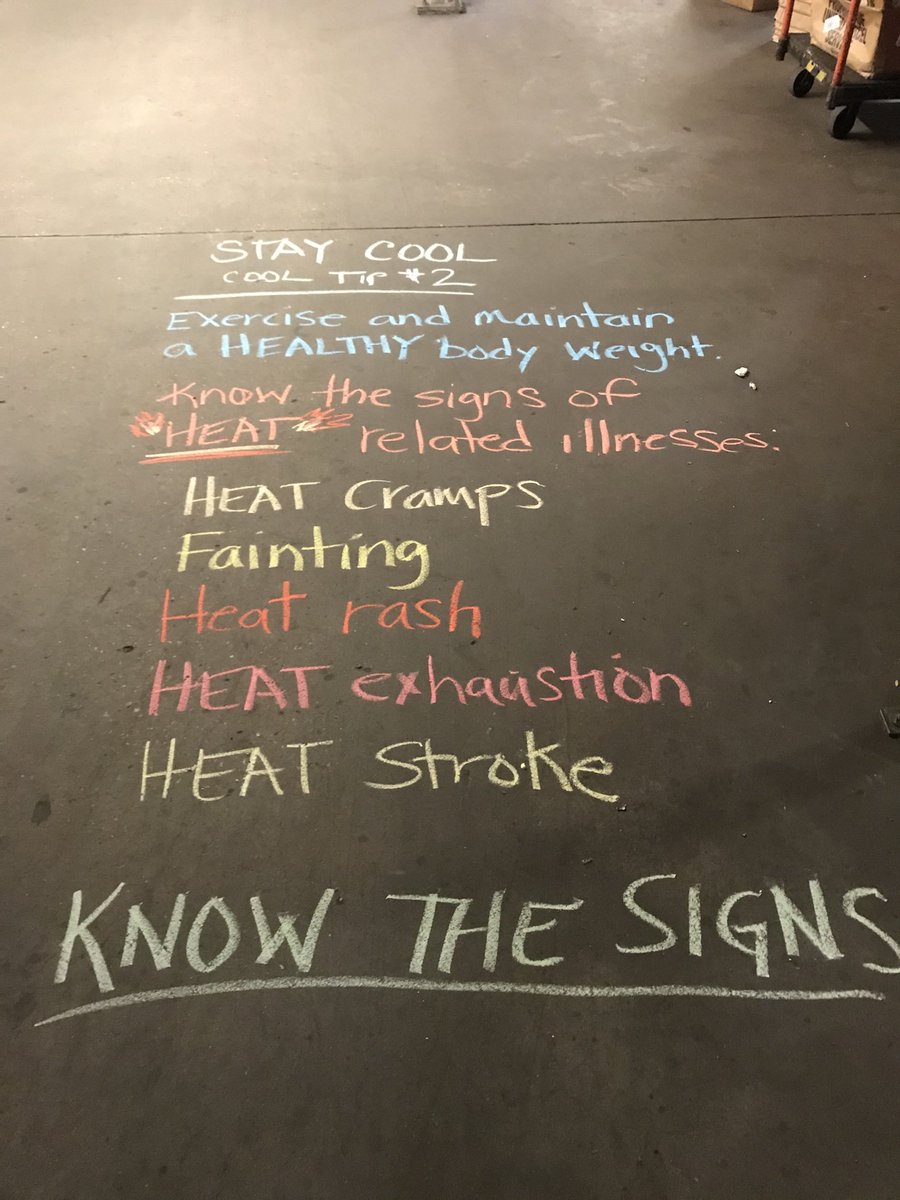 STAY COOL
COOL TIP #2
Exercise and maintain
a HEALTHY body weight.
Know the signs of
"HEAT" related illnesses.
HEAT Cramps
Fainting
Heat rash
HEAT exhaustion
HEAT Stroke
KNOW THE SIGNS